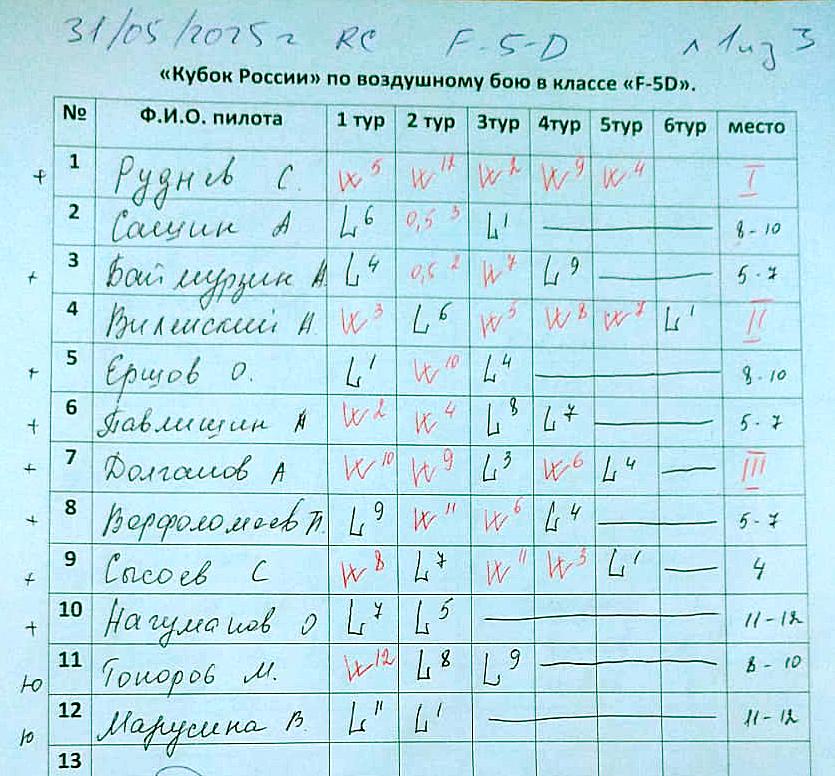 31/05/2025г RC F-5-D л 1 из 3
«Кубок России» по воздушному бою в классе «F-5D».
№ Ф.И.О. пилота 1 тур 2 тур 3тур 4тур 5тур 6тур место
+ 1 Руднев С. W 5 W 12 W 2 W 9 W 4 I
2 Сашин А L 6 0,5 3 L 1 8-10
+ 3 Баймурзин А. L 4 0,5 2 W 7 L 9 5-7
4 Виленский А. W 3 L 6 W 5 W 8 W 7 L 1 II
+ 5 Ершов О. L 1 W 10 L 4 8-10
+ 6 Павлищин А W 2 W 4 L 8 L 7 5-7
+ 7 Долганов А W 10 W 9 L 3 W 6 L 4 III
+ 8 Варфоломеев П. L 9 W 11 W 6 L 4 5-7
+ 9 Сысоев С W 8 L 7 W 11 W 3 L 1 4
+ 10 Нагуманов О L 7 L 5 11-12
Ю 11 Топоров М. W 12 L 8 L 9 8-10
Ю 12 Марусина В. L 11 L 1 11-12
13